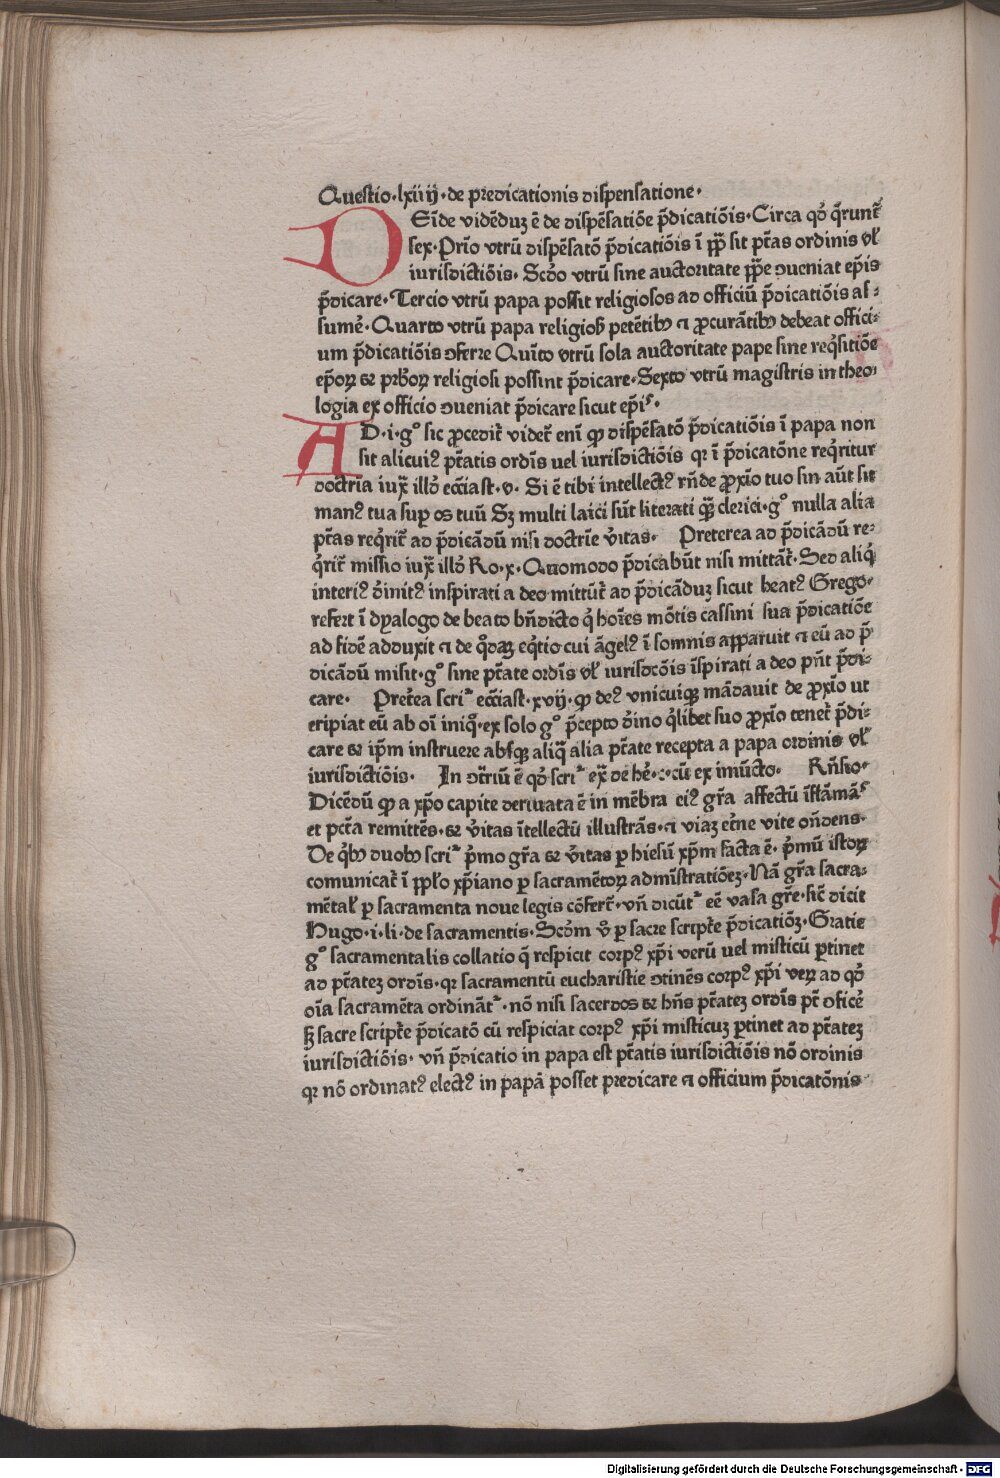 Questio·lxiiij·de predicationis dispensatione·
DEīde vidēduꝫ ē de dispēsatiōe p̄dicatiōis·Circa qđ q̄runt̄
sex·Prīo vtrū dispēsatō p̄dicatiōis ī pp̄ sit pt̄as ordinis vl̓
iurisdictiōis· Scd̓o vtrū sine auctoritate pp̄e ꝯueniat ep̄is
p̄dicare·Tercio vtrū papa possit religiosos ad officiū p̄dicatiōis as⸗
sume̓·Quarto vtrū papa religiosꝫ petētibꝫ ⁊ ꝓcurātibꝫ debeat offici⸗
um p̄dicatiōis ꝯferre Quīto vtrū sola auctoritate pape sine req̇sitiōe
ep̄oꝝ et prb̓oꝝ religiosi possint p̄dicare·Sexto vtrū magistris in theo⸗
logia ex officio ꝯueniat p̄dicare sicut ep̄iˢ·
AD·i·g° sic ꝓcedit̄ videt̄ enī ꝙ dispēsatō p̄dicatiōis ī papa non
sit alicuiꝰ pt̄atis ordīs uel iurisdictiōis qꝛ ī p̄dicatōne req̇ritur
doctrīa iux̄ illđ eccīast·v· Si ē tibi intellectꝰ rn̄de ꝓxīo tuo sin aūt sit
manꝰ tua suꝑ os tuū Sꝫ multi laici sūt literati qꝫ̄ clerici·g° nulla alia
pt̄as req̇rit̄ ad p̄dicādū nisi doctrīe v̓itas· Preterea ad p̄dicādū re⸗
q̇rit̄ missio iux̄ illđ Ro·x·Quomodo p̄dicabūt nisi mittāt̄·Sed aliq̇
interiꝰ d̓initꝰ inspirati a deo mittūt̄ ad p̄dicāduꝫ sicut beatꝰ Grego·
refert ī dyalogo de beato bn̄dicto q̇ hoīes mōtis cassini sua p̄dicatiōe
ad fidē adduxit ⁊ de q̊daꝫ eq̇tio cui āgelꝰ ī somnis apparuit ⁊ eū ad p̄
dicādū misit·g° sine pt̄ate ordīs vl̓ iurisdcōis īspirati a deo pn̄t p̄di⸗
care· Pret̓ea scriᵐ eccīast·xvij·ꝙ deꝰ vnicuiqꝫ mādauit de ꝓxīo ut
eripiat eū ab oī iniq̄·ex solo g° p̄cepto d̓ino q̇libet suo ꝓxīo tenet̄ p̄di⸗
care et ip̄m instruere absqꝫ aliq̄ alia pt̄ate recepta a papa ordinis vl̓
iurisdictiōis· In ꝯt̓riū ē qđ scriᵐ ex̄ de he̓·c·cū ex iniūcto· Rn̄sio·
Dicēdū ꝙ a xp̄o capite deriuata ē in mēbra eiꝰ gr̄a affectū īflāmāˢ
et pct̄a remittēs·et v̓itas ītellectū illustrās·⁊ viaꝫ et̓ne vite on̄dens·
De q̇bꝫ duobꝫ scriᵐ p̓mo gr̄a et v̓itas ꝑ hiesū xp̄m facta ē· p̓mū istoꝝ
comunicat̄ ī ppl̓o xp̄iano ꝑ sacramētoꝝ adm̄istratiōeꝫ·Nā gr̄a sacra⸗
mētal̓ ꝑ sacramenta noue legis cōfert̄·vn̄ dicūtʳ eē vasa gr̄e·sic̄ dicit
Hugo·i·li·de sacramentis·Scd̓m v̊ ꝑ sacre script̓e p̄dicatiōꝫ·Gratie
g° sacramentalis collatio q̄ respicit corpꝰ xp̄i verū uel misticū ꝑtinet
ad pt̄ateꝫ ordīs·qꝛ sacramentū eucharistie ꝯtinēs corpꝰ xp̄i veꝝ ad qđ
oīa sacramēta ordinātʳ·nō nisi sacerdos et hn̄s pt̄ateꝫ ordīs pt̄ ꝯfice̓
sꝫ sacre script̓e p̄dicatō cū respiciat corpꝰ xp̄i misticuꝫ ꝑtinet ad pt̄ateꝫ
iurisdictiōis· vn̄ p̄dicatio in papa est pt̄atis iurisdictiōis nō ordinis
qꝛ nō ordinatꝰ electꝰ in papā posset predicare ⁊ officium p̄dicatōnis
Digitalisierung gefördert durch die Deutsche Forschungsgemeinschaft - DFG